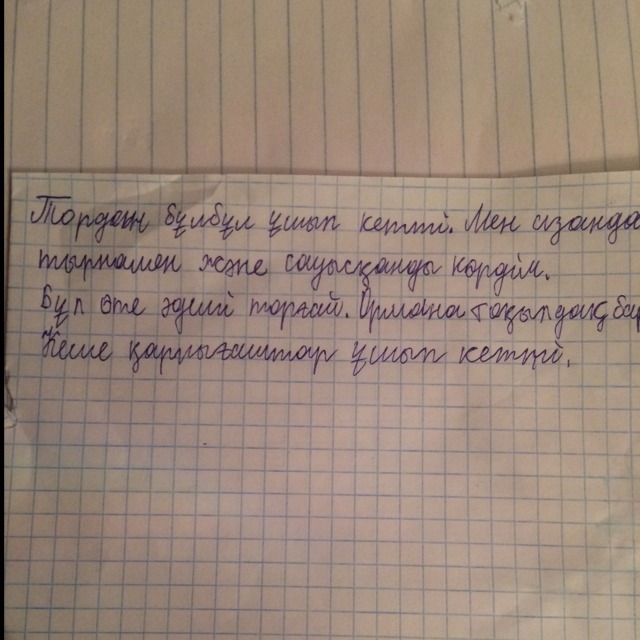 Тордан бұлбұл ұшып кетті. Мен азанда
тырнамен және сауысқанды көрдім.
Бұл өте әдемі торғай. Ормана тоқылдақ бар
Кеше қарлығаштар ұшып кетті.